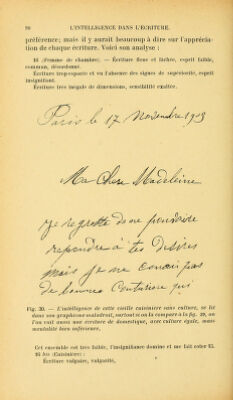 98 L'INTELLIGENCE DANS L'ÉCRITURE.
préférence; mais il y aurait beaucoup à dire sur l'apprécia-
tion de chaque écriture. Voici son analyse :
16 (Femme de chambre). — Écriture floue et lâchée, esprit faible,
commun, désordonné.
Écriture trop espacée et vu l'absence des signes de supériorité, esprit
insignifiant.
Écriture très inégale de dimensions, sensibilité exaltée.
Paris le 17 Novembre 1903
Ma Chere Madeleine
je regrette de ne pouvoire
reppondre à tes desires
mais je ne connais pas
de bonnes
Fig. 30. — L'intelligence de cette vieille cuisinière sans culture, se lit
dans son graphisme maladroit, surtout si on la compare à la fig. 29, où
l'on voit aussi une écriture de domestique, avec culture égale, mais
mentalité bien inférieure.
Cet ensemble est très faible, l'insignifiance domine et me fait coter 85.
16 bis (Cuisinière) :
Écriture vulgaire, vulgarité,